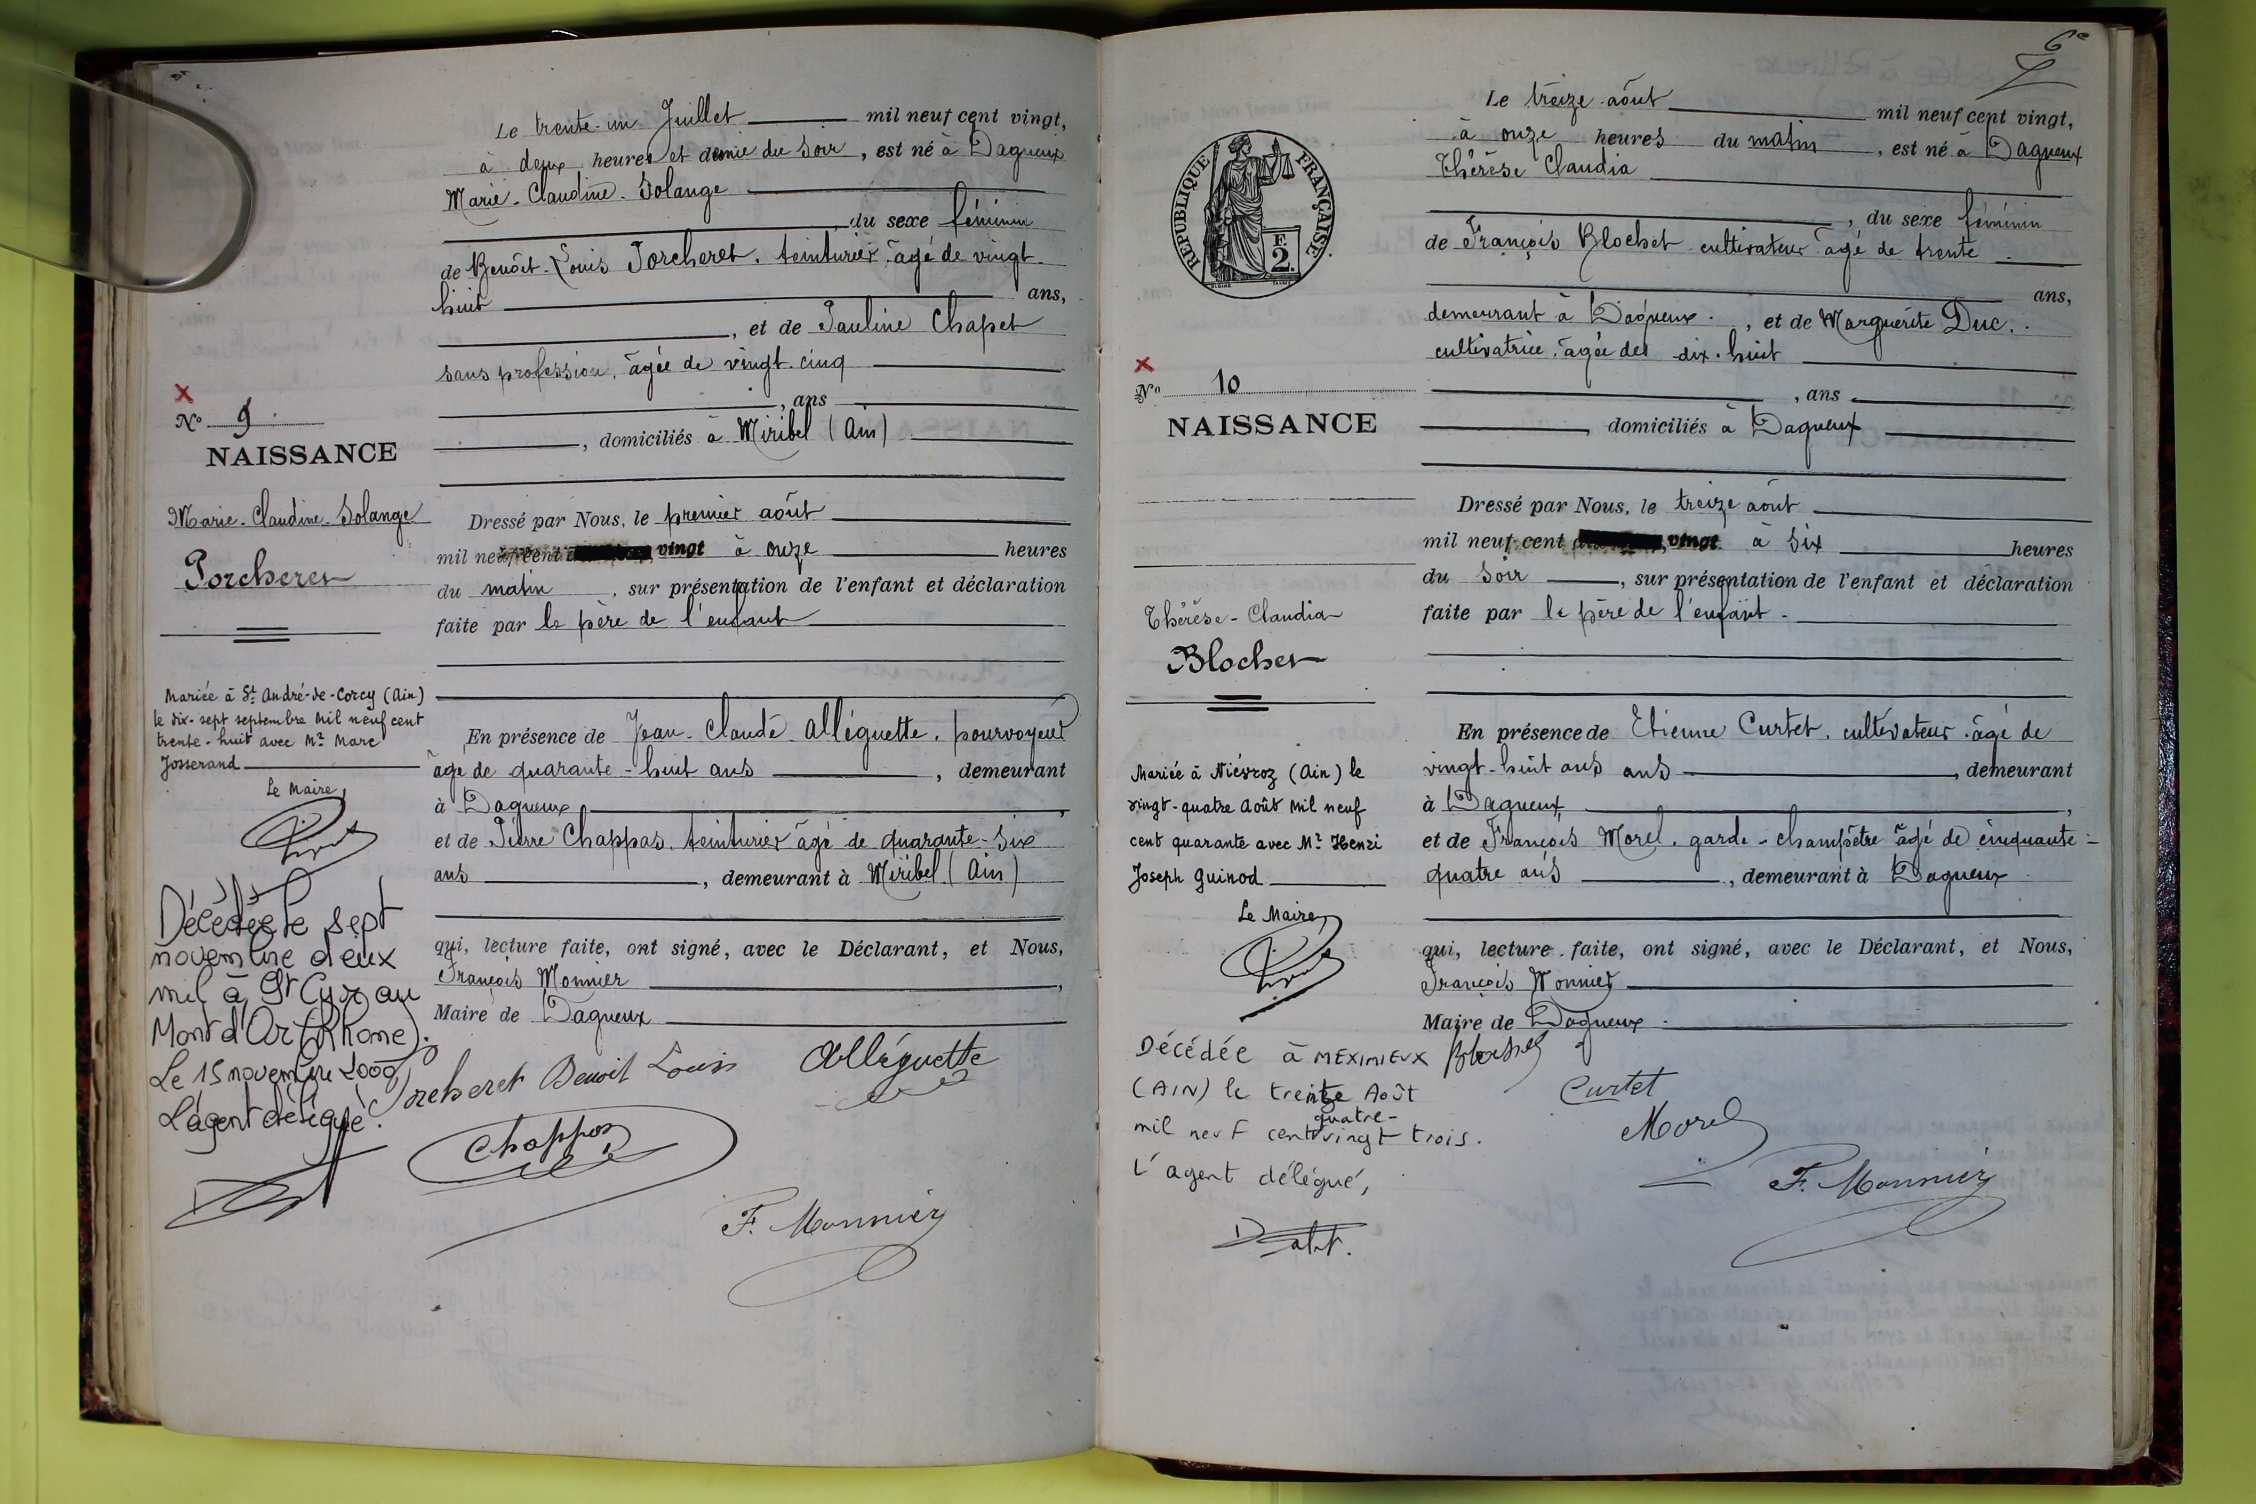 Le trente-un Juillet mil neuf cent vingt,
à deux heures et demie du soir, est né à Dagneux
Marie-Claudine-Solange
, du sexe féminin
de Benoît-Louis Porcheret, teinturier, âgé de vingt-
huit ans,
, et de Pauline Chapet
sans profession, âgée de vingt-cinq
, ans
, domiciliés à Miribel (Ain)
X
No 9
NAISSANCE
Marie-Claudine-Solange
Porcheret
Dressé par Nous, le premier août
mil neuf cent vingt à onze heures
du matin, sur présentation de l'enfant et déclaration
faite par le père de l'enfant
En présence de Jean-Claude Alléguette, pourvoyeur
âgé de quarante-huit ans, demeurant
à Dagneux
et de Pierre Chappas, teinturier âgé de quarante-six
ans, demeurant à Miribel (Ain)
qui, lecture faite, ont signé, avec le Déclarant, et Nous,
François Monnier,
Maire de Dagneux
Mariée à St André-de-Corcy (Ain)
le dix-sept septembre mil neuf cent
trente-huit avec Mr Marc
Josserand
Le Maire,
Décédée le sept
novembre deux
mil à St Cyr au
Mont d'Or (Rhone).
Le 15 novembre 2000
L'agent délégué.
Porcheret Benoit Louis
Alléguette
Chappas
F. Monnier
6e
Le treize août mil neuf cent vingt,
à onze heures du matin, est né à Dagneux
Thérèse Claudia
, du sexe féminin
de François Blochet cultivateur âgé de trente
ans,
demeurant à Dagneux, et de Marguerite Duc,
cultivatrice, âgée de dix-huit
, ans
, domiciliés à Dagneux
RÉPUBLIQUE FRANÇAISE.
F.
2.
X
No 10
NAISSANCE
Thérèse-Claudia
Blochet
Dressé par Nous, le treize août
mil neuf cent vingt à six heures
du soir, sur présentation de l'enfant et déclaration
faite par le père de l'enfant
En présence de Etienne Curtet, cultivateur âgé de
vingt-huit ans ans, demeurant
à Dagneux,
et de François Morel, garde-champêtre âgé de cinquante-
quatre ans, demeurant à Dagneux
qui, lecture faite, ont signé, avec le Déclarant, et Nous,
François Monnier
Maire de Dagneux
Mariée à Niévroz (Ain) le
vingt-quatre Août mil neuf
cent quarante avec Mr Henri
Joseph Guinod
Le Maire,
Décédée à MEXIMIEUX
(AIN) le Août
mil neuf cent quatre-vingt trois.
L'agent délégué,
Blochet
Curtet
Morel
F. Monnier